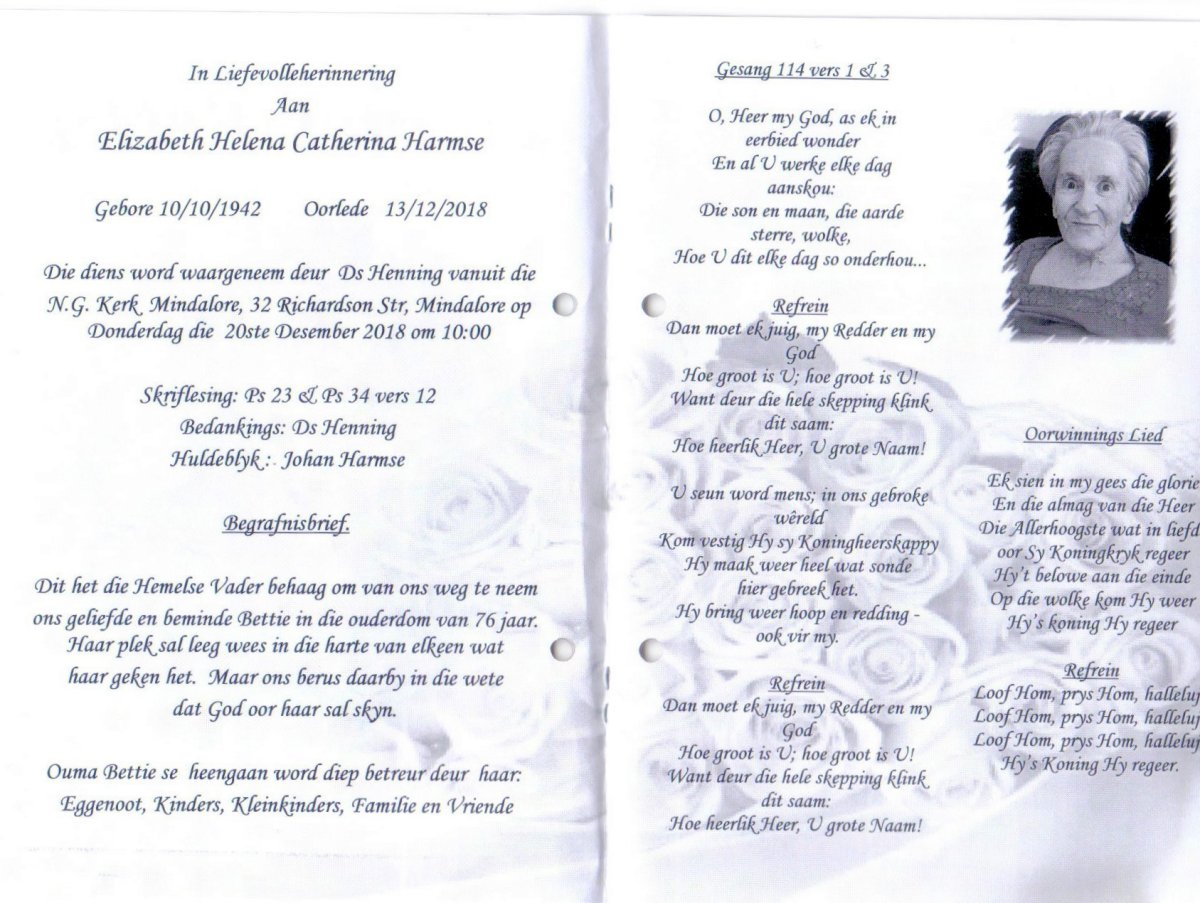 In Liefevolleherinnering
Aan
Elizabeth Helena Catherina Harmse
Gebore 10/10/1942 Oorlede 13/12/2018
Die diens word waargeneem deur Ds Henning vanuit die
N.G. Kerk Mindalore, 32 Richardson Str, Mindalore op
Donderdag die 20ste Desember 2018 om 10:00
Skriflesing: Ps 23 & Ps 34 vers 12
Bedankings: Ds Henning
Huldeblyk : Johan Harmse
Begrafnisbrief.
Dit het die Hemelse Vader behaag om van ons weg te neem
ons geliefde en beminde Bettie in die ouderdom van 76 jaar.
Haar plek sal leeg wees in die harte van elkeen wat
haar geken het. Maar ons berus daarby in die wete
dat God oor haar sal skyn.
Ouma Bettie se heengaan word diep betreur deur haar:
Eggenoot, Kinders, Kleinkinders, Familie en Vriende
Gesang 114 vers 1 & 3
O, Heer my God, as ek in
eerbied wonder
En al U werke elke dag
aanskou:
Die son en maan, die aarde
sterre, wolke,
Hoe U dit elke dag so onderhou...
Refrein
Dan moet ek juig, my Redder en my
God
Hoe groot is U; hoe groot is U!
Want deur die hele skepping klink
dit saam:
Hoe heerlik Heer, U grote Naam!
U seun word mens; in ons gebroke
wêreld
Kom vestig Hy sy Koningheerskappy
Hy maak weer heel wat sonde
hier gebreek het.
Hy bring weer hoop en redding -
ook vir my.
Refrein
Dan moet ek juig, my Redder en my
God
Hoe groot is U; hoe groot is U!
Want deur die hele skepping klink
dit saam:
Hoe heerlik Heer, U grote Naam!
Oorwinnings Lied
Ek sien in my gees die glorie
En die almag van die Heer
Die Allerhoogste wat in liefd
oor Sy Koningkryk regeer
Hy't belowe aan die einde
Op die wolke kom Hy weer
Hy's koning Hy regeer
Refrein
Loof Hom, prys Hom, halleluj
Loof Hom, prys Hom, halleluj
Loof Hom, prys Hom, halleluj
Hy's Koning Hy regeer.